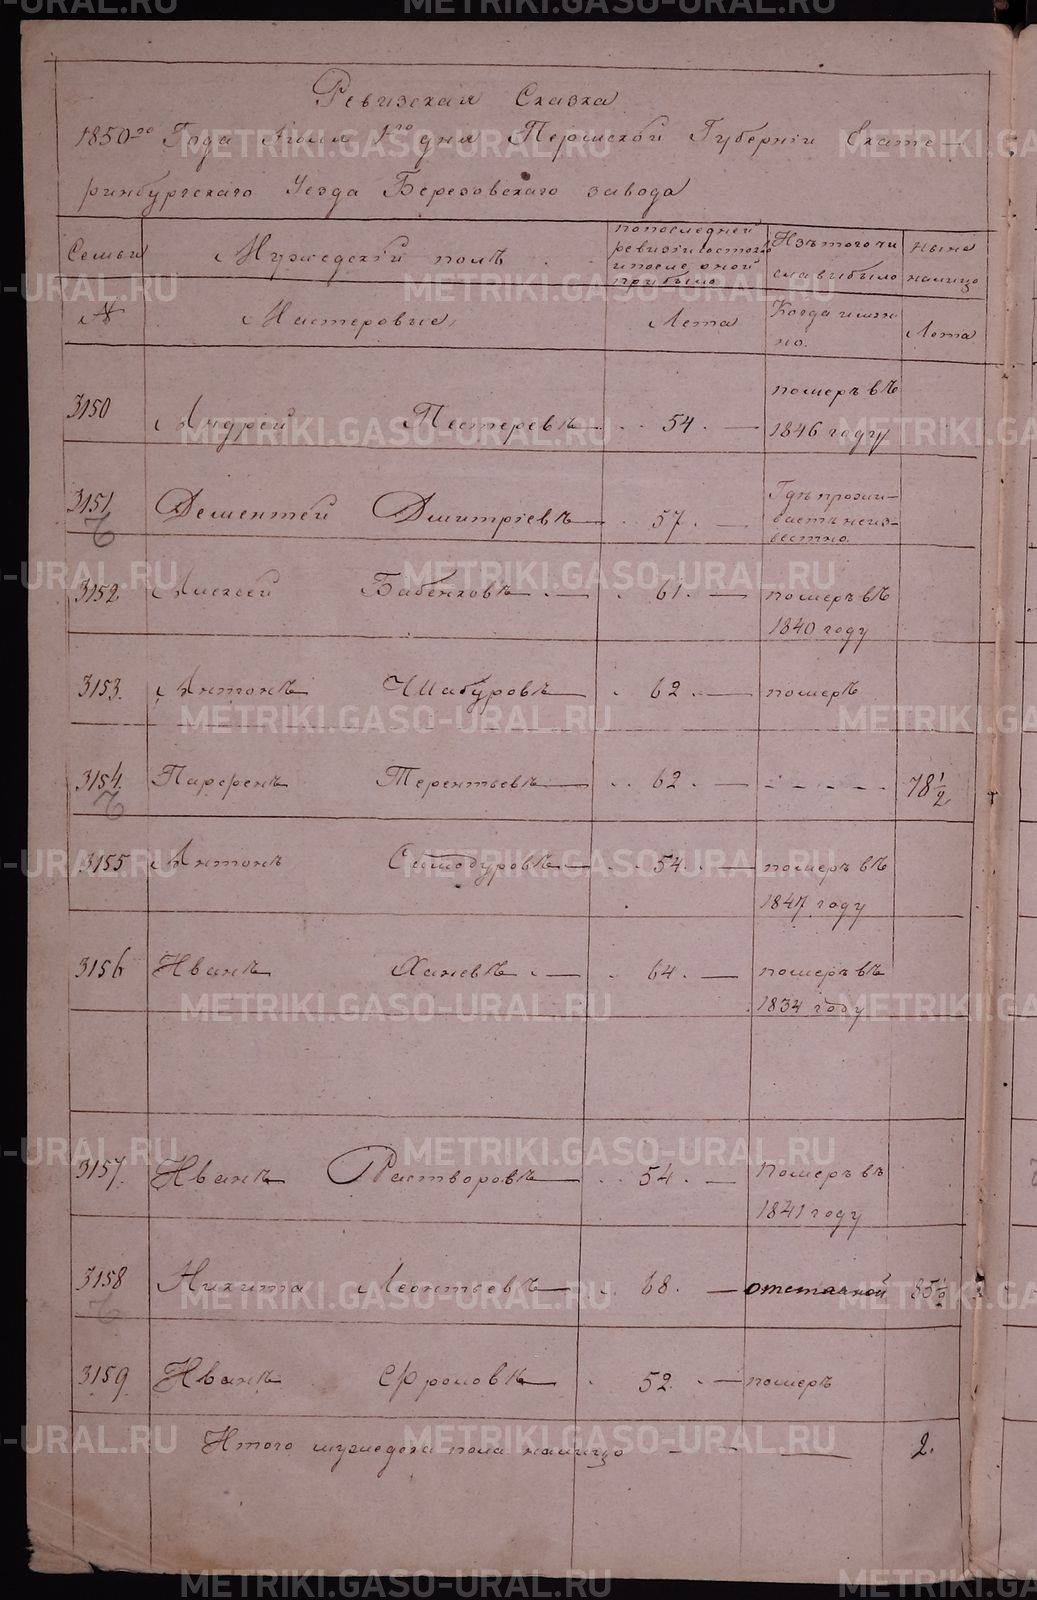 Ревизская Сказка
1850го Года Июля 1го дня Пермской Губернiи Екате-
ринбургскаго Уезда Березовскаго завода
Семьи
Мужедскiй полъ
попоследней
ревизiи состояло
ипосле оной
прибыло
Изътого чи
сла выбыло
ныне
налицо
№
Мастеровые,
Лета
Когда имян
но.
Лета
3150 Андрей Пестеревъ 54. померъ въ
1846 году
3151 Дементей Дмитрiевъ 57. Где прожи-
ваетъ неиз-
вестно.
3152 Алексей Бабенковъ 61. померъ въ
1840 году
3153. Антонъ Чшабуровъ 62. померъ
3154. Парфенъ Терентьевъ 62. 78 1/2
3155 Антонъ 54. померъ въ
1847 году
3156 Иванъ Ханевъ 64. померъ въ
1834 году
3157. Иванъ Растворовъ 54. Померъ въ
1841 году
3158 Никита Леонтьевъ 68. отставной 85 1/2
3159 Иванъ Фроловъ 52. померъ
Итого мужедска пола налицо 2.
METRIKI.GASO-URAL.RU